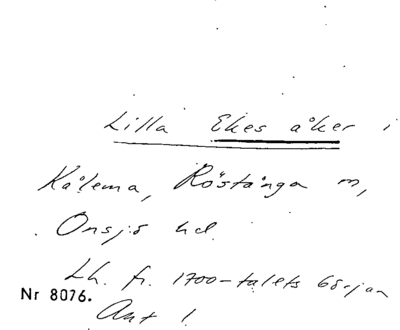 Lilla Ekes åker i
Kålema, Röstånga m,
Onsjö hd.
Lh. fr. 1700-talets början
Nr 8076.
Ant !